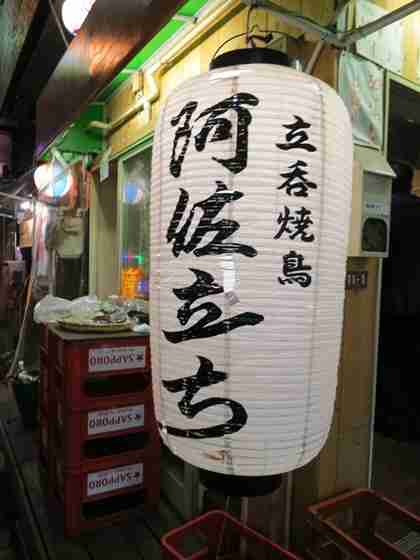 立呑焼鳥
阿佐立ち
SAPPORO
SAPPORO
SAPPORO